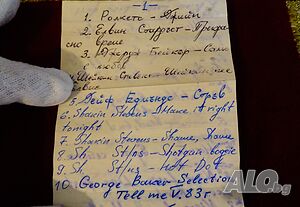 -1-
1. Рокетс -
2. Елвин Стардъст - Прекра
сно време
3. Джордж Бейкър - Само
с любов
4. Шейкин Стивънс - Шейкин
5. Дейф Едмъндс -
6. Shakin Stevens Make it right
tonight
7. Shakin Stevens - Shame, Shame
8. Sh. St/ns - Shotgun boogie
9. Sh. St/ns Hot Dog
10. George Baker Selection
Tell me V. 83г
ALO.bg